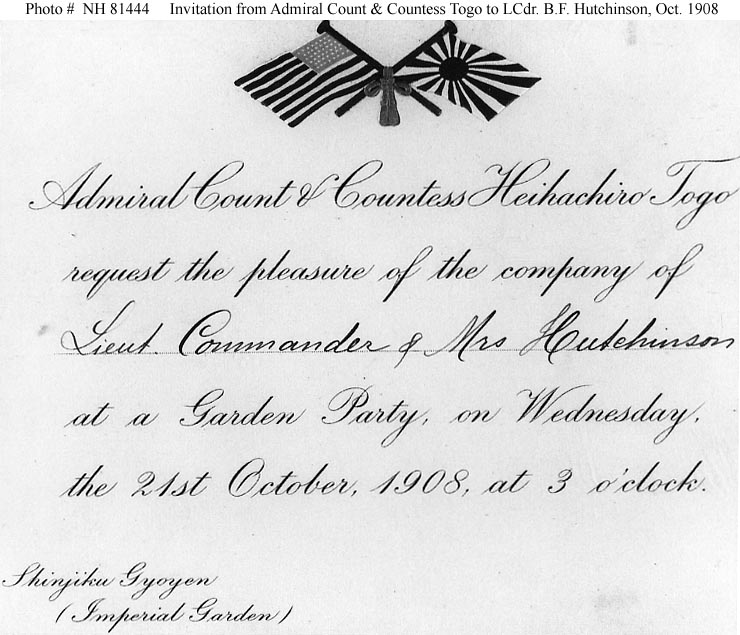 Photo # NH 81444 Invitation from Admiral Count & Countess Togo to LCdr. B.F. Hutchinson, Oct. 1908
Admiral Count & Countess Heihachiro Togo
request the pleasure of the company of
Lieut. Commander & Mrs Hutchinson
at a Garden Party, on Wednesday,
the 21st October, 1908, at 3 o'clock.
Shinjiku Gyoyen
(Imperial Garden)